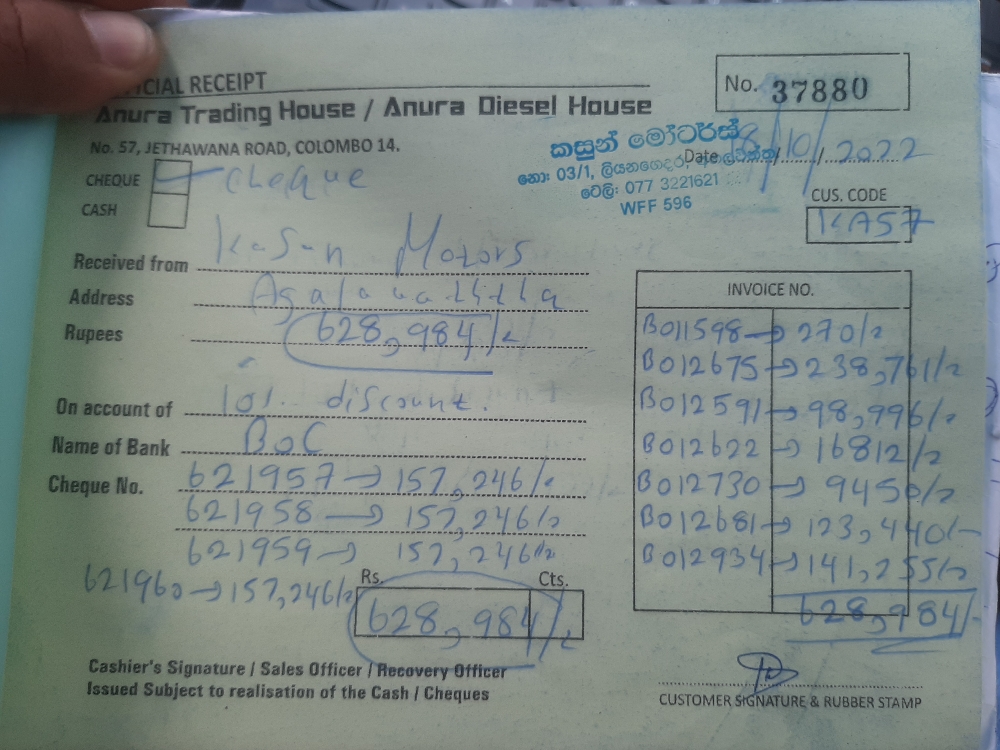 CIAL RECEIPT
No. 37880
Anura Trading House / Anura Diesel House
No. 57, JETHAWANA ROAD, COLOMBO 14.
කසුන් මෝටර්ස්
නො: 03/1, ලියනගෙදර,
ටෙලි: 077 3221621
WFF 596
Date 10/2022
CHEQUE Cheque
CASH
CUS. CODE
KA57
Received from Kasun Motors
Address Agalawaththa
Rupees 628,984/=
On account of 10% discount.
Name of Bank BOC
Cheque No. 621957 → 157,246/=
621958 → 157,246/=
621959 → 157,246/=
621960 → 157,246/=
Rs. Cts.
628,984/=
INVOICE NO.
B011598 → 270/=
B012675 → 238,761/=
B012591 → 98,996/=
B012622 → 16812/=
B012730 → 9450/=
B012681 → 123,440/=
B012934 → 141,255/=
628,984/=
Cashier's Signature / Sales Officer / Recovery Officer
Issued Subject to realisation of the Cash / Cheques
CUSTOMER SIGNATURE & RUBBER STAMP